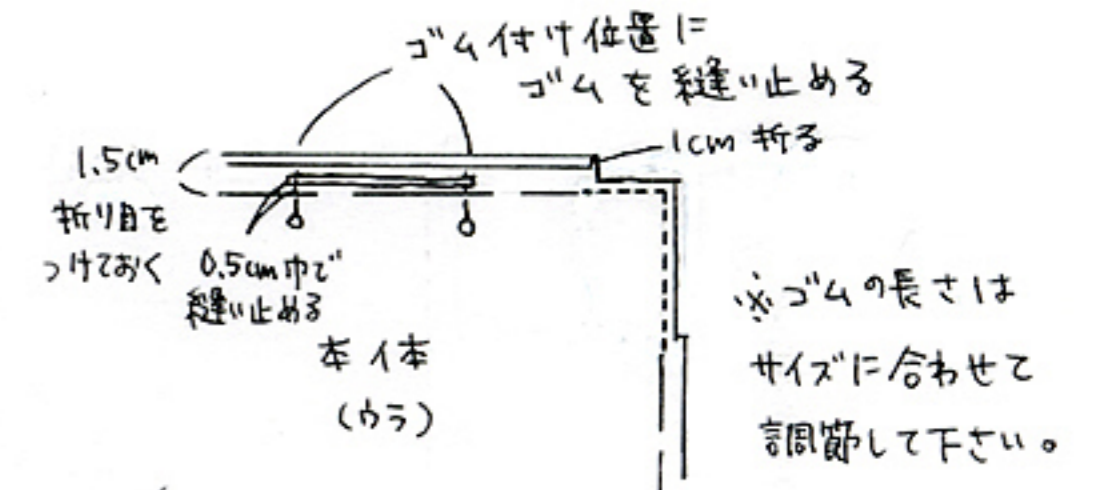 ゴム付け位置に
ゴムを縫い止める
1cm 折る
1.5cm
折り目を
つけておく
0.5cm巾で
縫い止める
本体
(ウラ)
※ゴムの長さは
サイズに合わせて
調節して下さい。